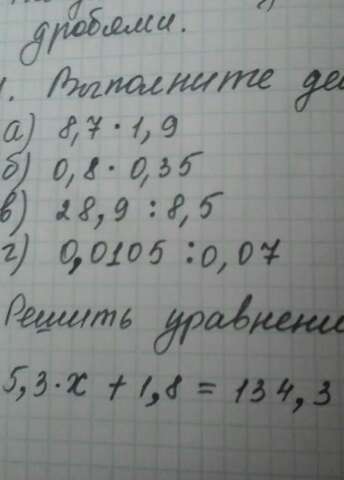 дробями.
1. Выполните
а) 8,7 · 1,9
б) 0,8 · 0,35
в) 28,9 : 8,5
г) 0,0105 : 0,07
Решить уравнени
5,3 · x + 1,8 = 134,3